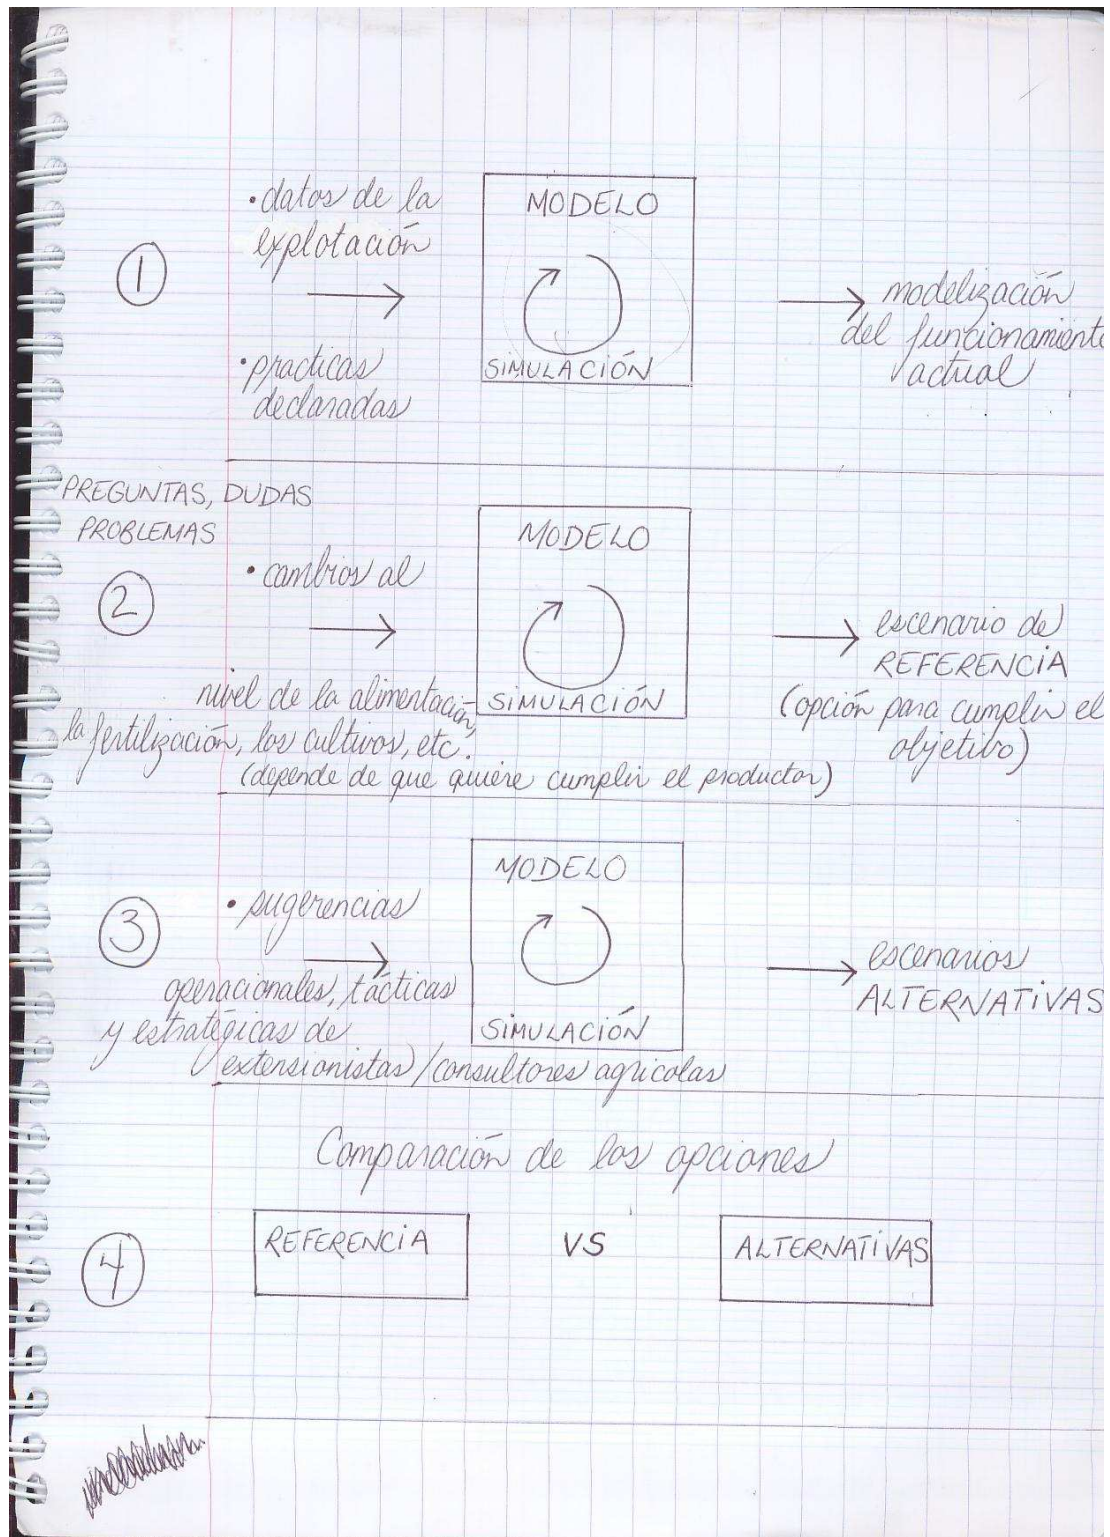 • datos de la
explotación
MODELO
①
→
SIMULACIÓN
→ modelización
del funcionamiento
actual
• practicas
declaradas
PREGUNTAS, DUDAS
PROBLEMAS
MODELO
②
• cambios al
→
nivel de la alimentación,
la fertilización, los cultivos, etc.
(depende de que quiere cumplir el productor)
SIMULACIÓN
→ escenario de
REFERENCIA
(opción para cumplir el
objetivo)
MODELO
③
• sugerencias
→
operacionales, tácticas
y estratégicas de
extensionistas/consultores agricolas
SIMULACIÓN
→ escenarios
ALTERNATIVAS
Comparación de los opciones
④
REFERENCIA
VS
ALTERNATIVAS